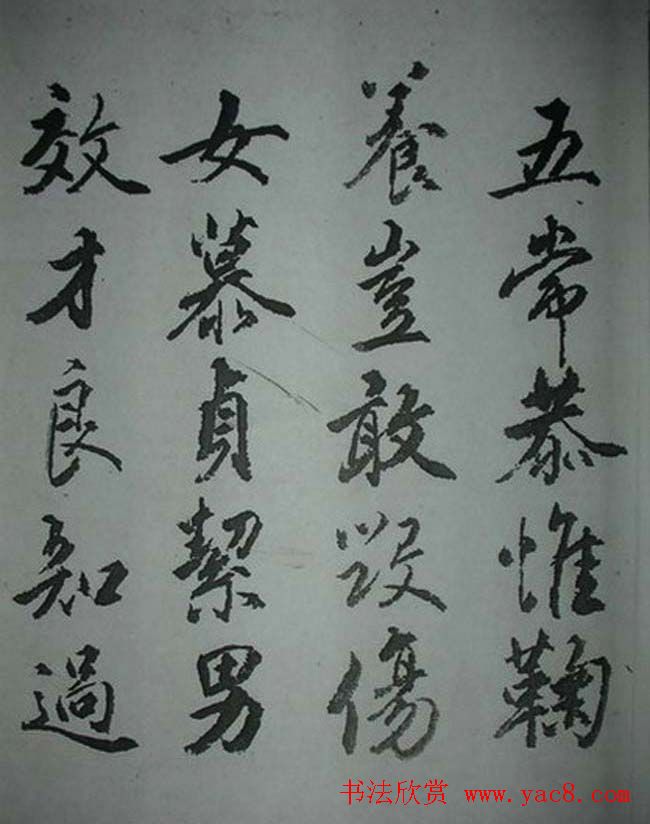 五常恭惟鞠
養豈敢毀傷
女慕貞絜男
效才良知過
书法欣赏 www.yac8.com